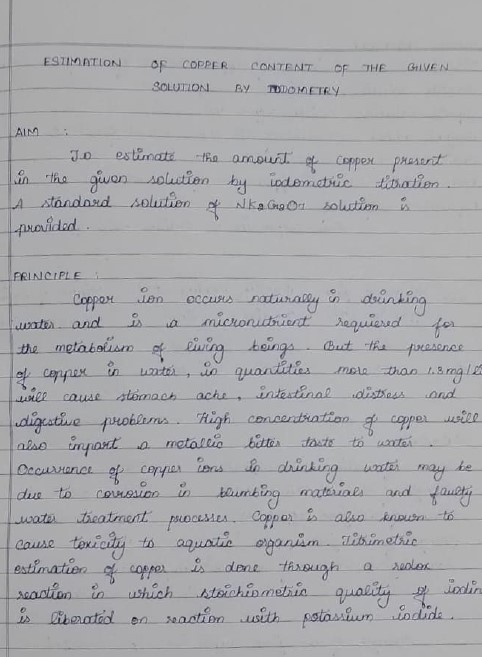 ESTIMATION OF COPPER CONTENT OF THE GIVEN
SOLUTION BY IODOMETRY
AIM :
To estimate the amount of copper present
in the given solution by iodometric titration.
A standard solution of NK2Cr2O7 solution is
provided.
PRINCIPLE :
Copper ion occurs naturally in drinking
water and is a micronutrient requiered for
the metabolism of living beings. But the presence
of copper in water, in quantities more than 1.3 mg/L
will cause stomach ache, intestinal distress and
digestive problems. High concentration of copper will
also impart a metallic bitter taste to water.
Occurrence of copper ions in drinking water may be
due to corrosion in blumbing materials and faulty
water treatment processes. Copper is also known to
cause toxicity to aquatic organism. Titrimetric
estimation of copper is done through a redox
reaction in which stoichiometric quality of iodin
is liberated on reaction with potassium iodide.